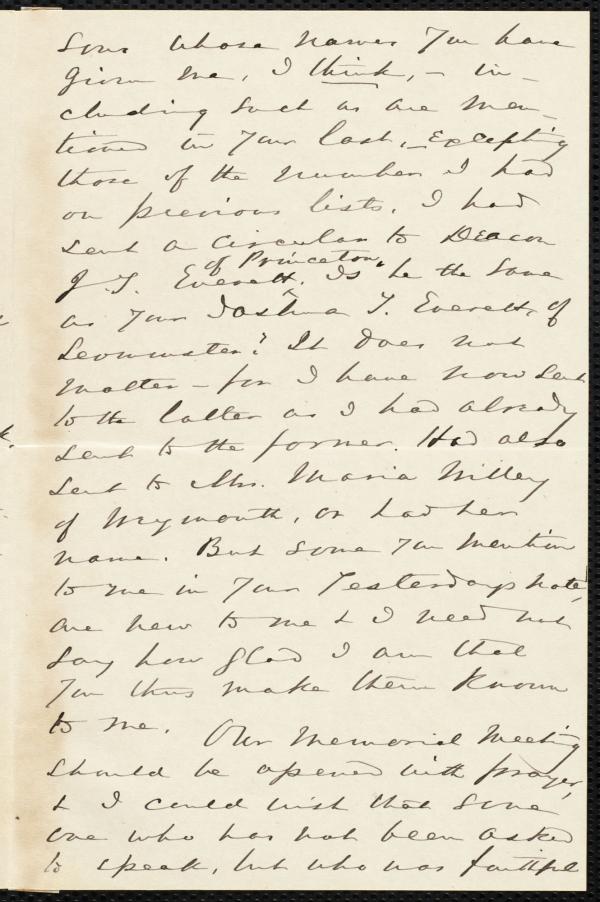 sons whose names you have
given me, I think, – in-
cluding such as are men-
tioned in your last, – excepting
those of the number I had
on previous lists. I had
sent a Circular to Deacon
of Princeton.
J. T. Everett. Is he the same
as your Joshua T. Everett, of
Leominster? It does not
matter – for I have now sent
to the latter as I had already
sent to the former. Had also
sent to Mrs. Maria Willey
of Weymouth, or had her
name. But some you mention
to me in your Yesterday's note,
are new to me & I need not
say how glad I am that
you thus make them known
to me. Our Memorial Meeting
should be opened with prayer,
& I could wish that some
one who has not been asked
to speak, but who was faithful